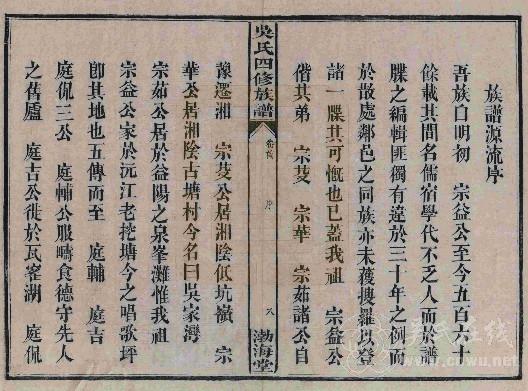 族譜源流序
吾族自明初 宗益公至今五百六十
餘載其間名儒宿學代不乏人而於譜
牒之編輯匪獨有違於三十年之例而
於故處鄰邑之同族亦未獲搜羅以登
諸一牒其可慨也已蓋我祖 宗益公
偕其弟 宗芰 宗華 宗茹諸公自
吳氏四修族譜
卷首
序
八
渤海堂
豫遷湘 宗芰公居湘陰低坑嶺 宗
華公居湘陰古塘村今名曰吳家灣
宗茹公居於益陽之泉峯灘惟我祖
宗益公家於沅江老挖塘今之唱歌坪
卽其地也五傳而至 庭輔 庭吉
庭侃三公 庭輔公服疇食德守先人
之舊廬 庭吉公徙於瓦窑湖 庭侃
吴氏在线